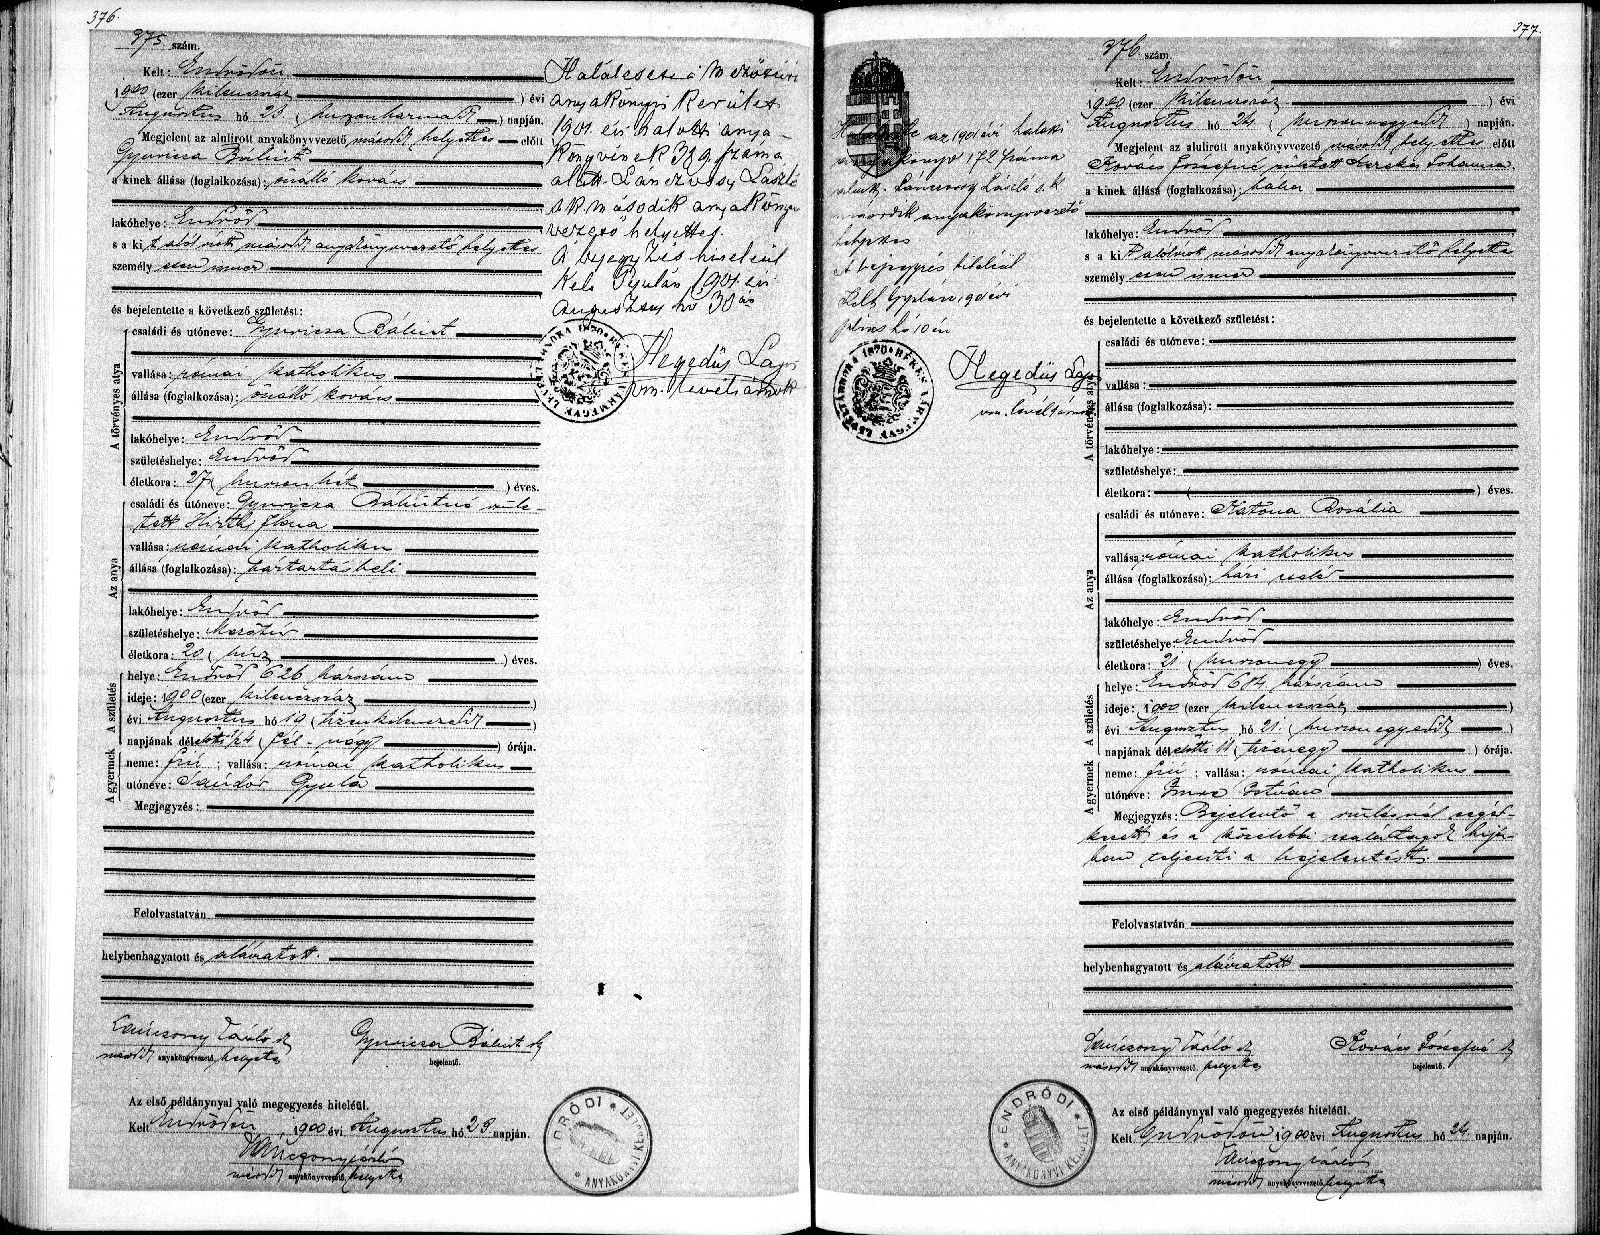 376.
375. szám.
Kelt: Endrődön
1900 (ezer kilenczszáz ) évi
Augusztus hó 23 ( huszonharmadik ) napján.
Megjelent az alulirott anyakönyvvezető második helyettes előtt
Gyuricza Bálint
a kinek állása (foglalkozása): önálló kovács
lakóhelye: Endrőd
s a kit alólirott második anyakönyvvezető helyettes
személyesen ismer
és bejelentette a következő születést:
A törvényes atya
családi és utóneve: Gyuricza Bálint
vallása: római katholikus
állása (foglalkozása): önálló kovács
lakóhelye: Endrőd
születéshelye: Endrőd
életkora: 27 ( huszonhét ) éves.
Az anya
családi és utóneve: Gyuricza Bálintné szüle-
tett Hirth Ilona
vallása: római katholikus
állása (foglalkozása): háztartásbeli
lakóhelye: Endrőd
születéshelye: Mezőtúr
életkora: 20 ( húsz ) éves.
A születés
helye: Endrőd 626 házszám
ideje: 1900 (ezer kilenczszáz )
évi Augusztus hó 19 ( tizenkilenczedik )
napjának délelőtti ( fél négy ) órája.
A gyermek
neme: fiú ; vallása: római katholikus
utóneve: Sándor Gyula
Megjegyzés:
Felolvastatván
helybenhagyatott és aláiratott.
Lánczossy László sk
másodk anyakönyvvezető. helyettes
Gyuricza Bálint sk
bejelentő.
Az első példánynyal való megegyezés hiteléül.
Kelt Endrődön 1900 évi Augusztus hó 23 napján.
Lánczossy László
másodk anyakönyvvezető. helyettes
ENDRŐDI * ANYAKÖNYVI KERÜLET *
Halálesete a mezőtúri
anyakönyvi kerület
1901. évi halotti anya-
könyvének 389. száma
alatt. Lánczossy László
s.k. második anyakönyv
vezető helyettes.
A bejegyzés hiteléül
Kelt Gyulán 1901. évi
augusztus hó 30 án
Hegedűs Lajos
vm. levéltárnok
BÉKÉS VÁRMEGYE LEVÉLTÁRNOKA 1870
377.
376. szám.
Kelt: Endrődön
1900 (ezer kilenczszáz ) évi
Augusztus hó 24 ( huszonnegyedik ) napján.
Megjelent az alulirott anyakönyvvezető másodk helyettes előtt
Kovács Józsefné született Johanna
a kinek állása (foglalkozása): bába
lakóhelye: Endrőd
s a kit alólirott másodk anyakönyvvezető helyettes
személyesen ismer
és bejelentette a következő születést:
A törvényes atya
családi és utóneve:
vallása:
állása (foglalkozása):
lakóhelye:
születéshelye:
életkora: ( ) éves.
Az anya
családi és utóneve: Katona Rozália
vallása: római katholikus
állása (foglalkozása): házi cseléd
lakóhelye: Endrőd
születéshelye: Endrőd
életkora: 21 ( huszonegy ) éves.
A születés
helye: Endrőd 684 házszám
ideje: 1900 (ezer kilenczszáz )
évi Augusztus hó 21. ( huszonegyedik )
napjának délelőtti 11 ( tizenegy ) órája.
A gyermek
neme: fiú ; vallása: római katholikus
utóneve: Imre István
Megjegyzés: Bejelentő a szülésnél segéd-
kezett és a közelebbi családtagok hijá-
ban teljesiti a bejelentést.
Felolvastatván
helybenhagyatott és aláiratott
Lánczossy László sk
másodk anyakönyvvezető. helyettes
Kovács Józsefné sk
bejelentő.
Az első példánynyal való megegyezés hiteléül.
Kelt Endrődön 1900 évi Augusztus hó 24 napján.
Lánczossy László
másodk anyakönyvvezető. helyettes
ENDRŐDI * ANYAKÖNYVI KERÜLET *
az 1901 évi halotti
anyakönyv 172 száma
alatt. Lánczossy László s.k.
második anyakönyvvezető
helyettes
A bejegyzés hiteléül
Kelt Gyulán 1901 évi
hó 10 én
Hegedűs Lajos
vm. levéltárnok
BÉKÉS VÁRMEGYE LEVÉLTÁRNOKA 1870